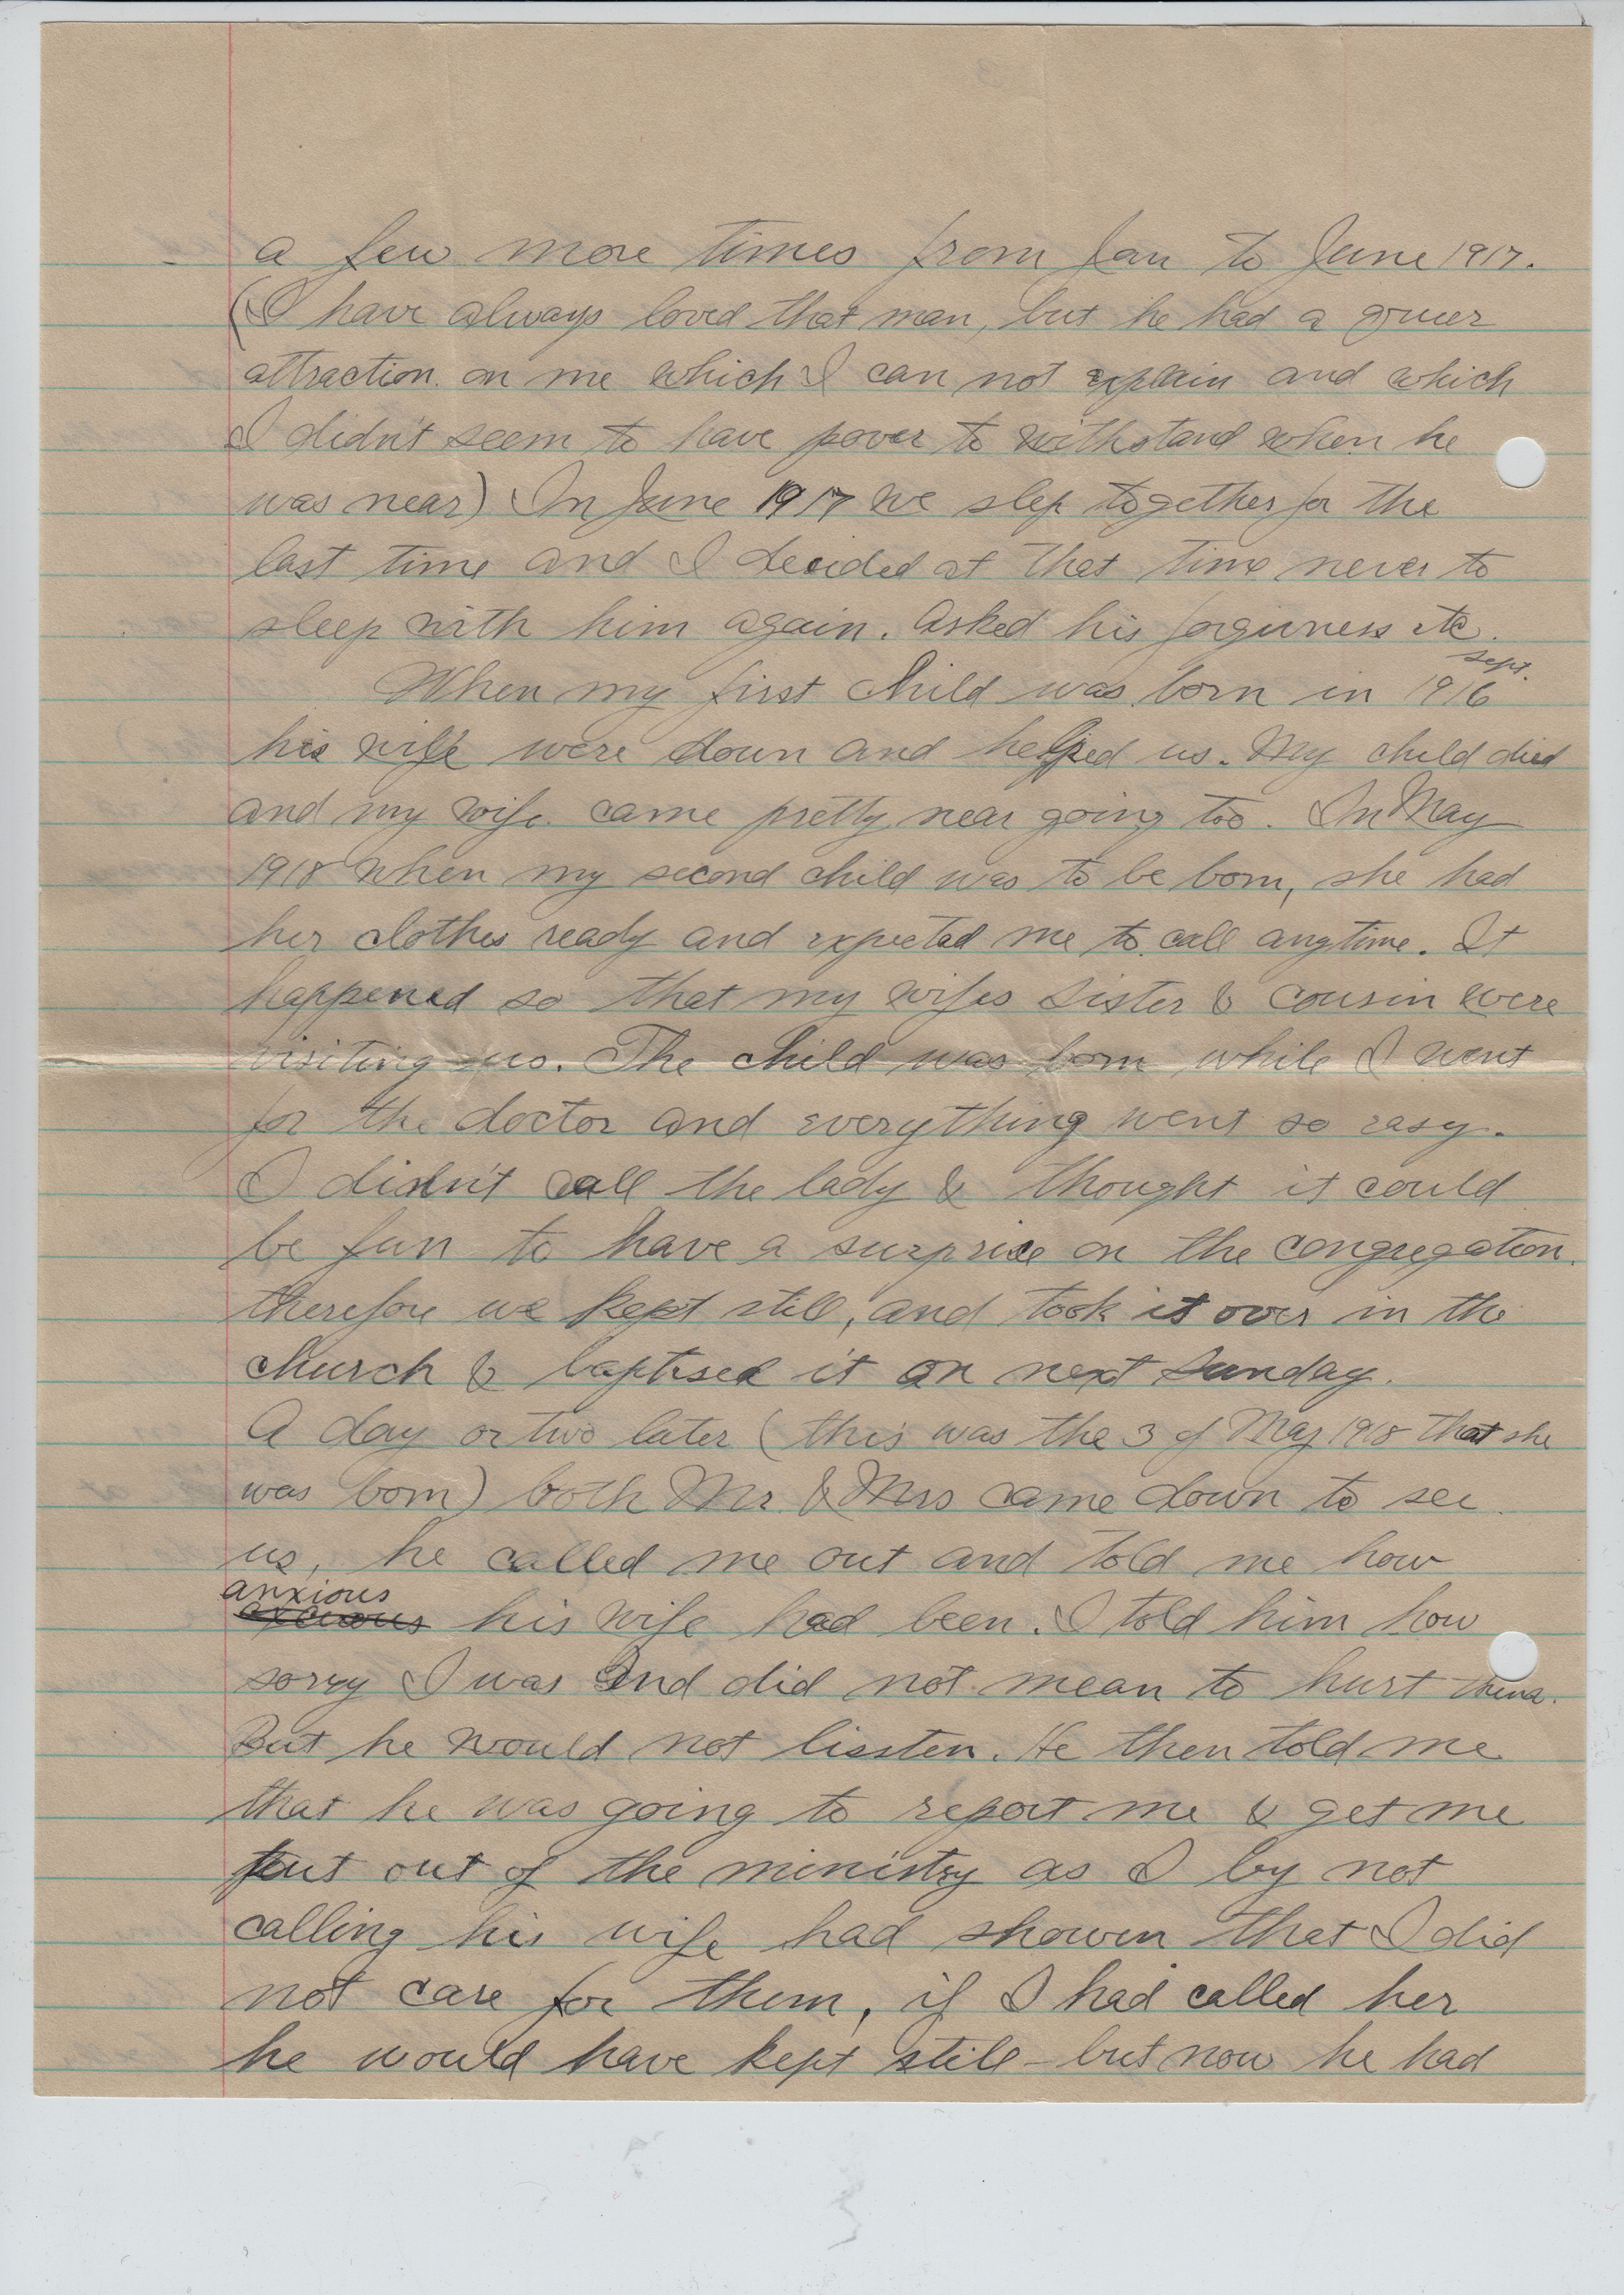 a few more times from Jan to June 1917.
(I have always loved that man, but he had a
attraction on me which I can not explain and which
I didn't seem to have power to withstand when he
was near) In June 1917 we slep together for the
last time and I decided at that time never to
sleep with him again. Asked his forgivness etc.
sept.
When my first child was born in 1916
his wife were down and helped us. My child died
and my wife came pretty near going too. In May
1918 when my second child was to be born, she had
her clothes ready and expected me to call anytime. It
happened so that my wifes sister & cousin were
visiting us. The child was born while I went
for the doctor and everything went so easy.
I didn't call the lady & thought it could
be fun to have a surprise on the congregation.
therefore we kept still, and took it over in the
church & baptised it on next Sunday.
A day or two later (this was the 3 of May 1918 that she
was born) both Mr. & Mrs came down to see
us, he called me out and told me how
anxious
his wife had been. I told him how
sorry I was and did not mean to hurt
But he would not lissten. He then told me
that he was going to report me & get me
put out of the ministry as I by not
calling his wife had showen that I did
not care for them, if I had called her
he would have kept still - but now he had